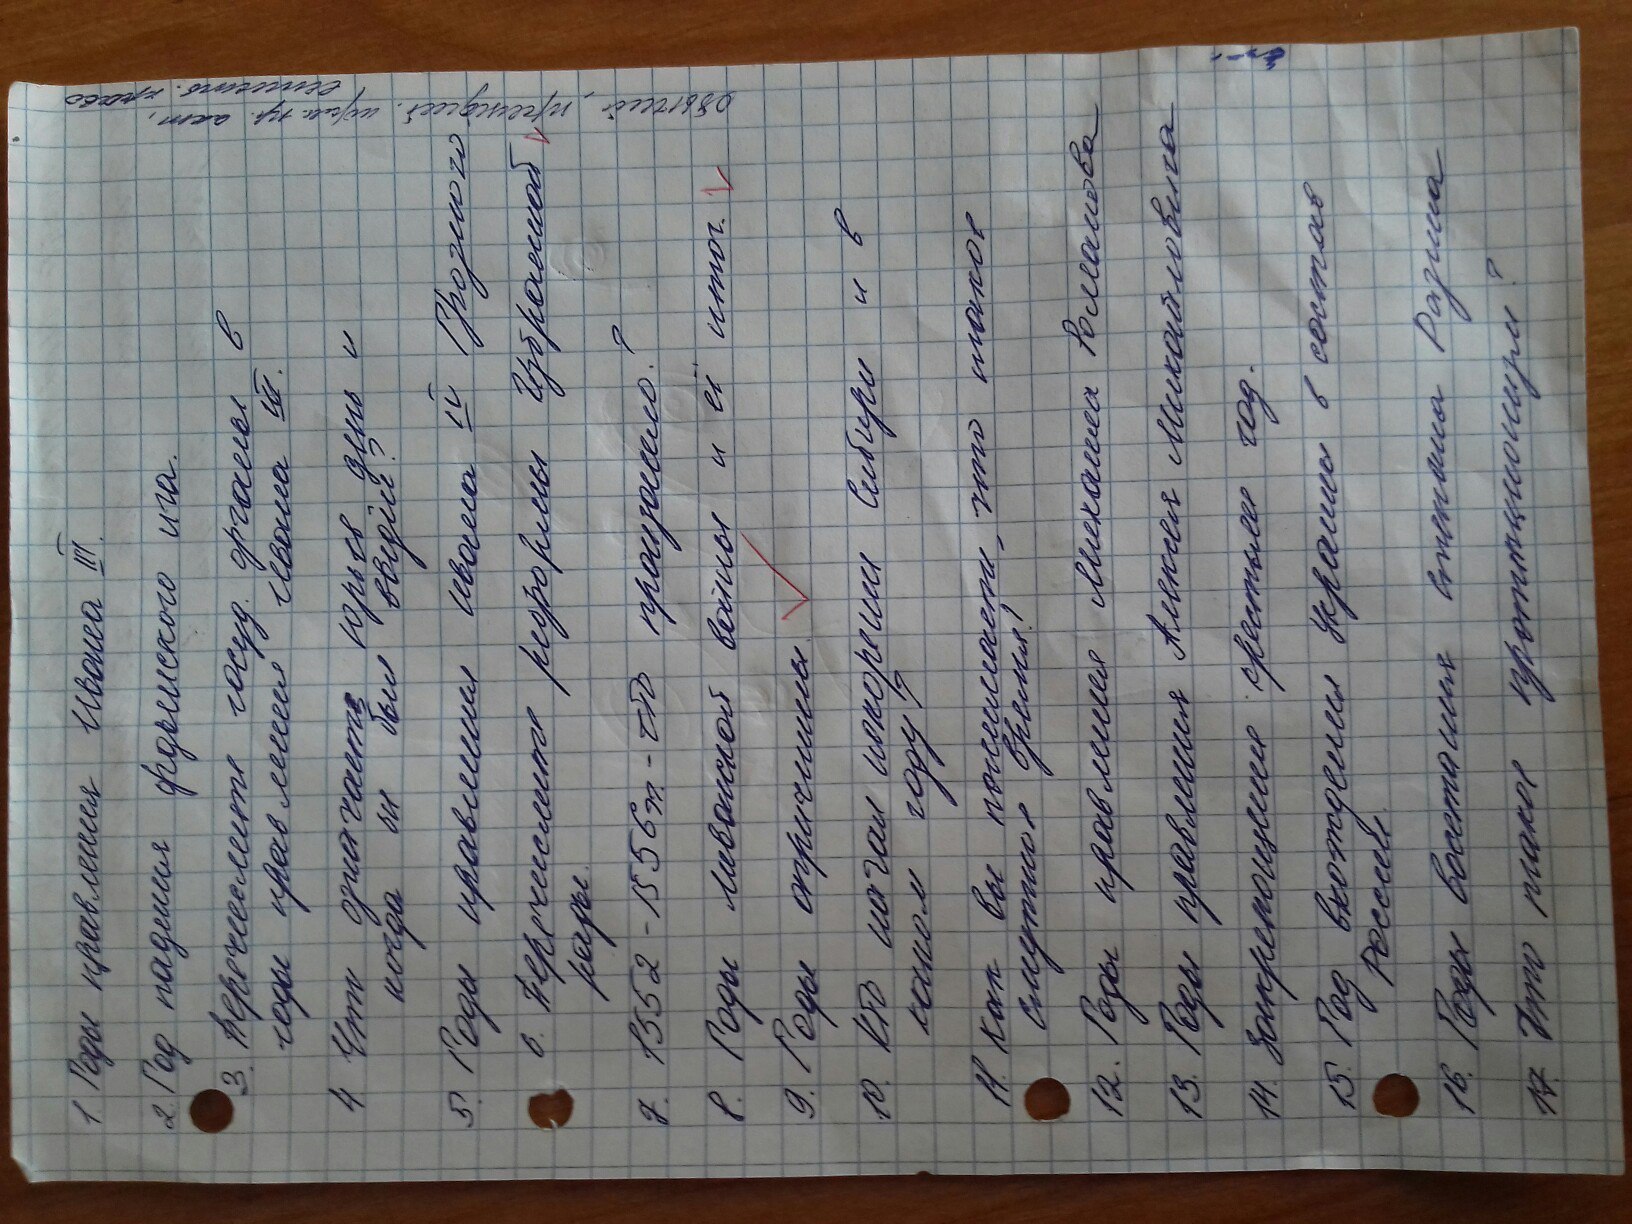 1 Годы правления Ивана III.
2. Год падения ордынского ига.
3. Перечислите госуд. органы в
годы правления Ивана III.
4 Что означает юрьев день и
когда он был введён?
5. Годы правления Ивана IV Грозного
6. Перечислите реформы Избранной
рады.
7. 1552-1556гг - что произошло?
8. Годы ливонской войны и её итог.
9. Годы опричнины.
10. Кто начал покорении Сибири и в
каком году?
11. Как вы понимаете, что такое
Смутное время?
12. Годы правления Михаила Романова
13. Годы правления Алексея Михайловича
14. Закрепощение крестьян год.
15. Год вхождения Украины в состав
России.
16. Годы восстания Степана Разина
17. Что такое протекционизм?
обычай, прецедент,